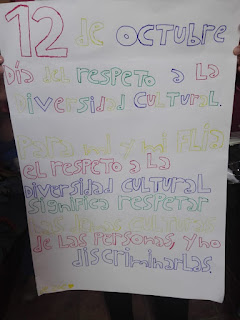 12 de octubre
Día del respeto a la
Diversidad cultural.
Para mí y mi FLIA
el respeto a la
diversidad cultural
significa respetar
de las personas, y no
discriminarlas.